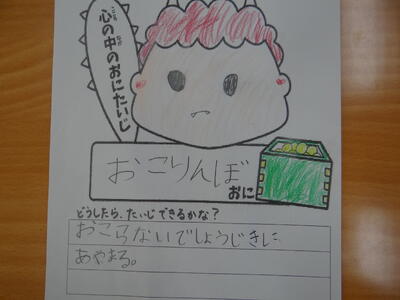 心の中のおにたいじ
こころ なか
おこりんぼ
おに
どうしたら、たいじできるかな?
おこらないでしょうじきに
あやまる。